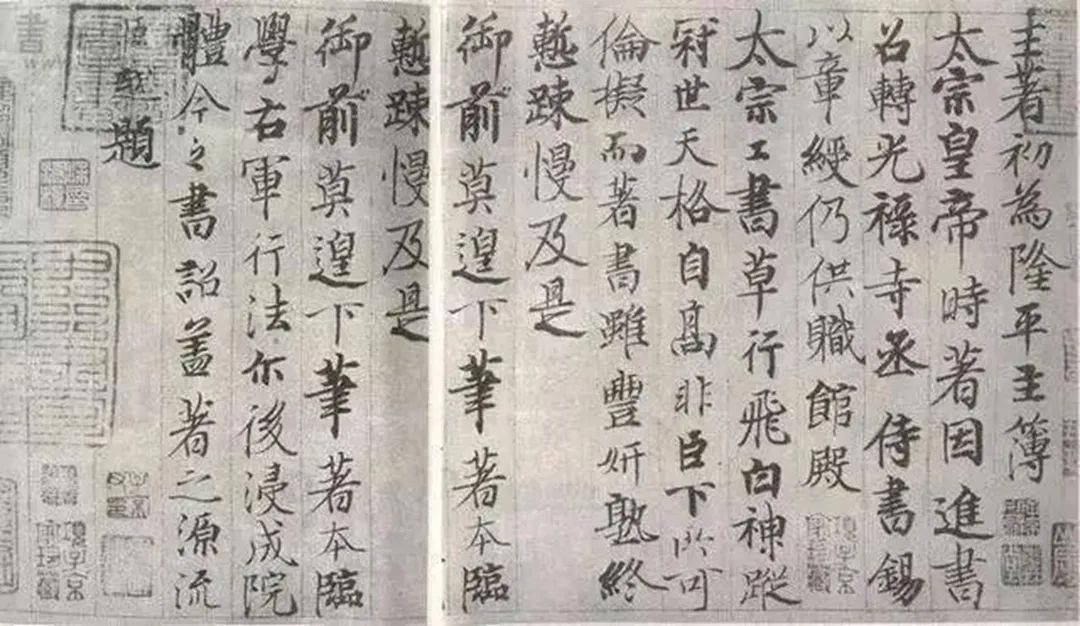 王著初為隆平主簿
太宗皇帝時著因進書
召轉光祿寺丞侍書錫
以章綬仍供職館殿
太宗工書草行飛白神蹤
冠世天格自高非臣下所可
倫擬而著書雖豐妍熟終
慙疎慢及是
御前莫遑下筆著本臨
慙疎慢及是
御前莫遑下筆著本臨
學右軍行法尒後浸成院
體今之書詔盖著之源流
題